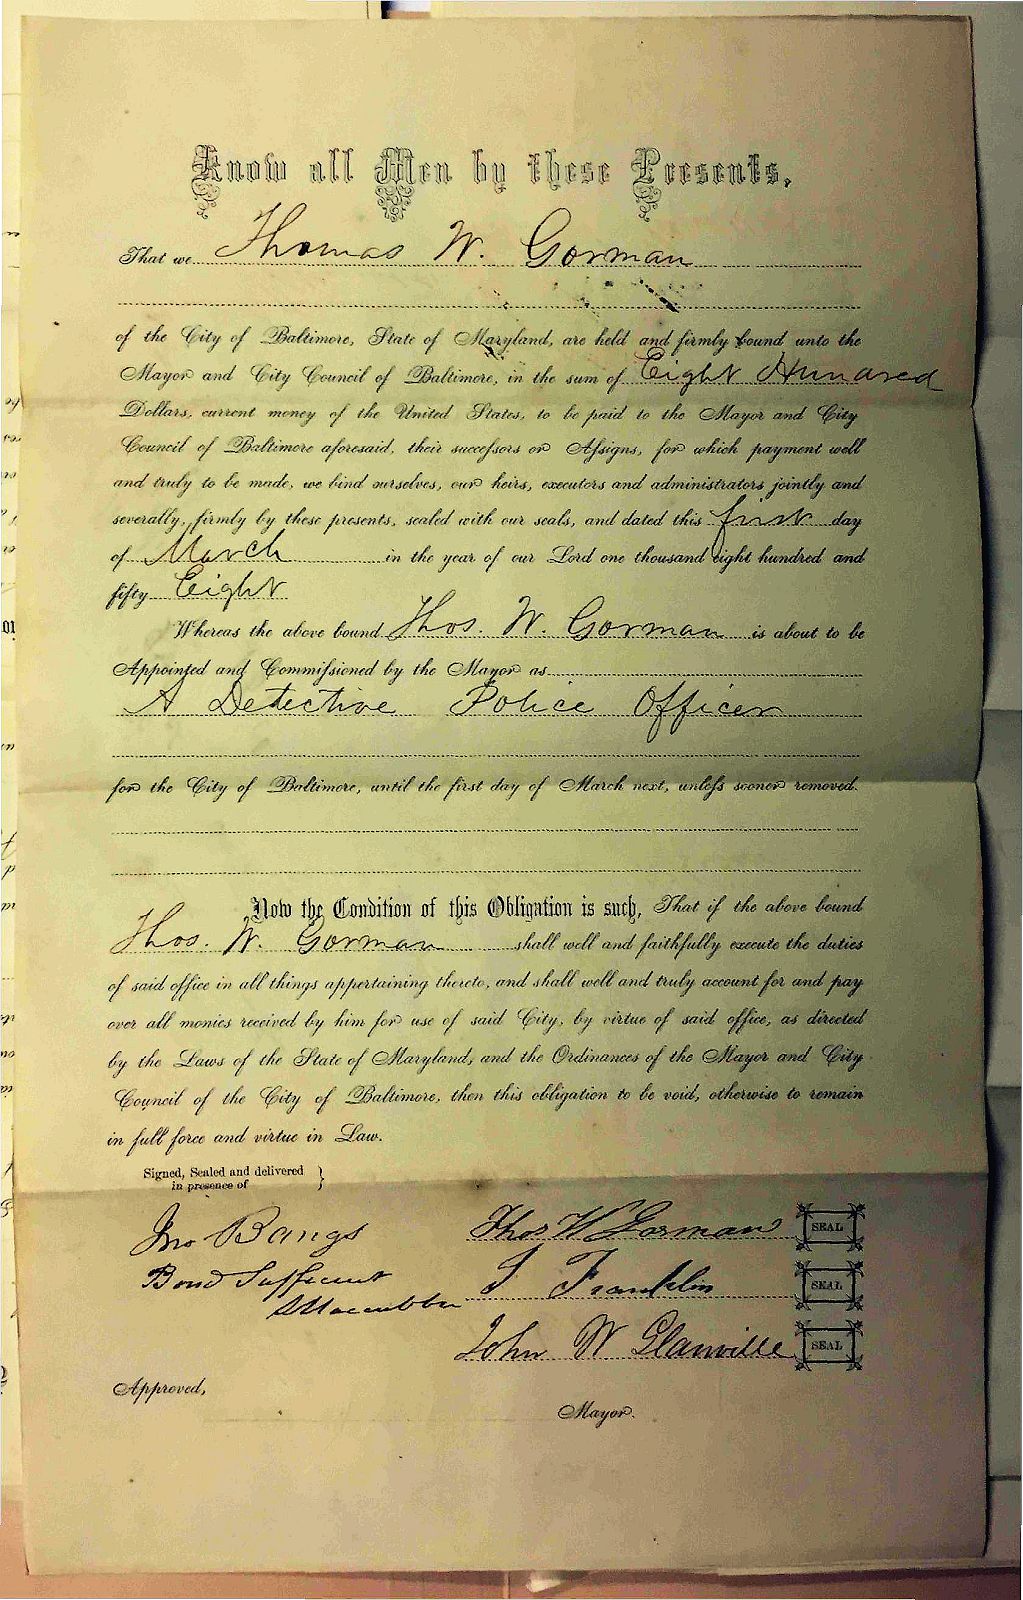 Know all Men by these Presents,
That we Thomas W. Gorman
of the City of Baltimore, State of Maryland, are held and firmly bound unto the
Mayor and City Council of Baltimore, in the sum of Eight Hundred
Dollars, current money of the United States, to be paid to the Mayor and City
Council of Baltimore aforesaid, their successors or Assigns, for which payment well
and truly to be made, we bind ourselves, our heirs, executors and administrators jointly and
severally, firmly by these presents, sealed with our seals, and dated this first day
of March in the year of our Lord one thousand eight hundred and
fifty Eight
Whereas the above bound Thos. W. Gorman is about to be
Appointed and Commissioned by the Mayor as
A Detective Police Officer
for the City of Baltimore, until the first day of March next, unless sooner removed.
Now the Condition of this Obligation is such, That if the above bound
Thos. W. Gorman shall well and faithfully execute the duties
of said office in all things appertaining thereto, and shall well and truly account for and pay
over all monies received by him for use of said City, by virtue of said office, as directed
by the Laws of the State of Maryland, and the Ordinances of the Mayor and City
Council of the City of Baltimore, then this obligation to be void, otherwise to remain
in full force and virtue in Law.
Signed, Sealed and delivered
in presence of
Jno Bangs Thos W Gorman SEAL
Bond Sufficient Franklin SEAL
John W Glanville SEAL
Approved,
Mayor.